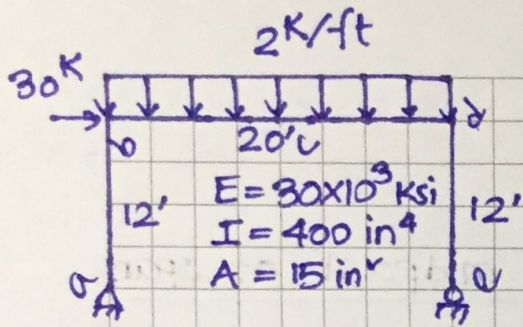 2 K/ft
30 K
b 20' c d
12' E = 30×10³ ksi 12'
I = 400 in⁴
A = 15 in²
a e